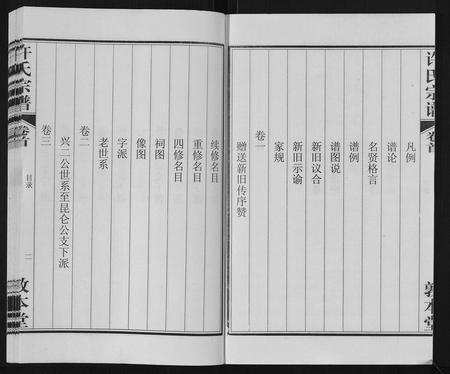 许氏宗谱
卷首
敦本堂
凡例
谱论
名贤格言
谱例
谱图说
新旧议合
新旧示谕
家规
卷一
赠送新旧传序赞
续修名目
重修名目
四修名目
祠图
像图
字派
老世系
卷二
兴二公世系至昆仑公支下派
卷三
许氏宗谱
卷首
目录
二
敦本堂